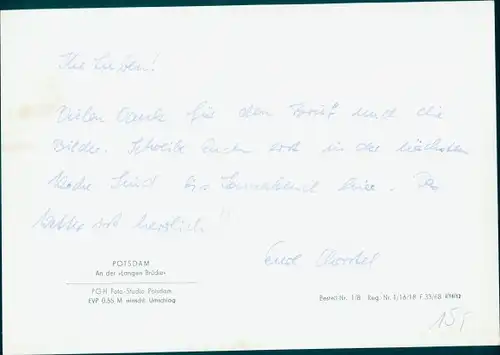 Ihr Lieben!
Vielen Dank für den Brief und die
Bilder. Schreibe Euch erst in der nächsten
Woche. Sind bis Sonnabend hier. Das
Wetter ist herrlich!!
Euer
POTSDAM
An der »Langen Brücke«
PGH Foto-Studio Potsdam
EVP 0,55 M einschl. Umschlag
Bestell-Nr. 1/8 Reg. Nr. 1/16/18 F 35/68